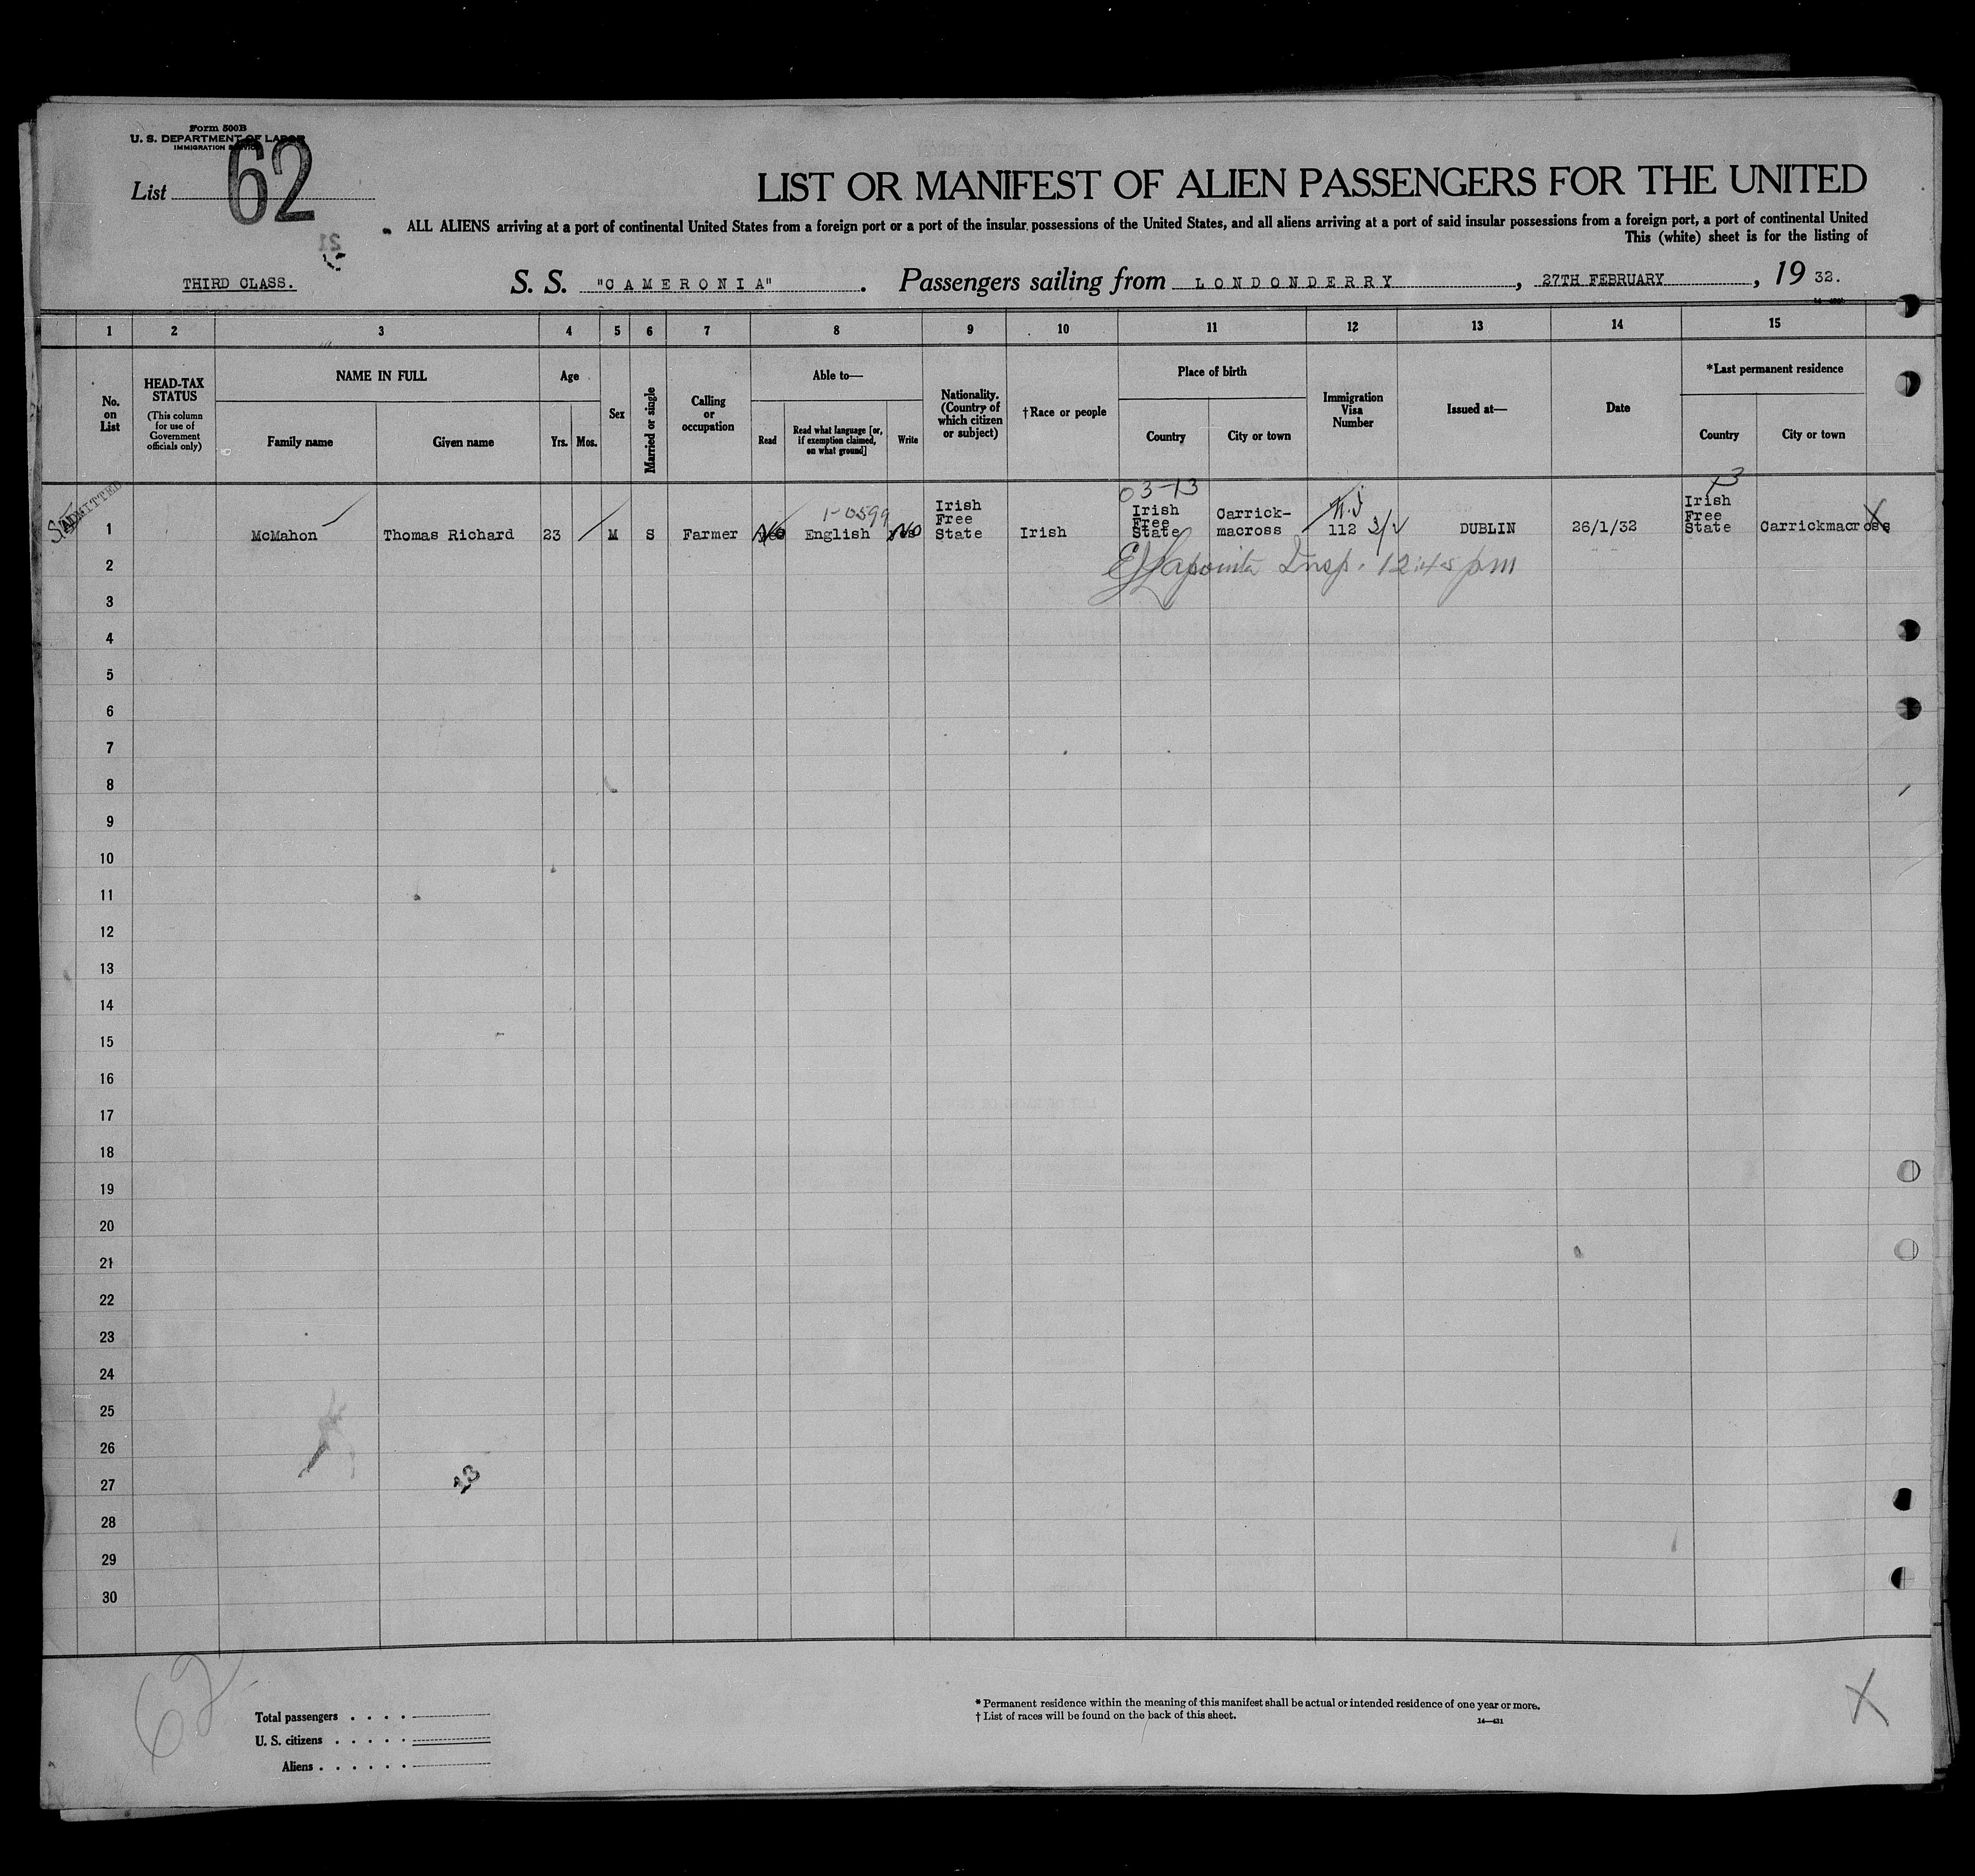 Form 500B
U. S. DEPARTMENT OF LABOR
IMMIGRATION SERVICE
List 62
21
LIST OR MANIFEST OF ALIEN PASSENGERS FOR THE UNITED
ALL ALIENS arriving at a port of continental United States from a foreign port or a port of the insular possessions of the United States, and all aliens arriving at a port of said insular possessions from a foreign port, a port of continental United
This (white) sheet is for the listing of
THIRD CLASS. S. S. "CAMERONIA". Passengers sailing from LONDONDERRY, 27TH FEBRUARY, 19 32.
1 2 3 4 5 6 7 8 9 10 11 12 13 14 15
No. on List
HEAD-TAX STATUS
(This column for use of Government officials only)
NAME IN FULL
Family name
Given name
Age
Yrs.
Mos.
Sex
Married or single
Calling or occupation
Able to—
Read
Read what language [or, if exemption claimed, on what ground]
Write
Nationality. (Country of which citizen or subject)
†Race or people
Place of birth
Country
City or town
Immigration Visa Number
Issued at—
Date
*Last permanent residence
Country
City or town
ADMITTED
03-13
1-0599
1 McMahon Thomas Richard 23 M S Farmer No English No Irish Free State Irish Irish Free State Carrick-macross 112 DUBLIN 26/1/32 Irish Free State Carrickmacross
2
Insp. 12:45 pm
3
4
5
6
7
8
9
10
11
12
13
14
15
16
17
18
19
20
21
22
23
24
25
26
27
28
29
30
62
Total passengers
U. S. citizens
Aliens
* Permanent residence within the meaning of this manifest shall be actual or intended residence of one year or more.
† List of races will be found on the back of this sheet.
14—431
X